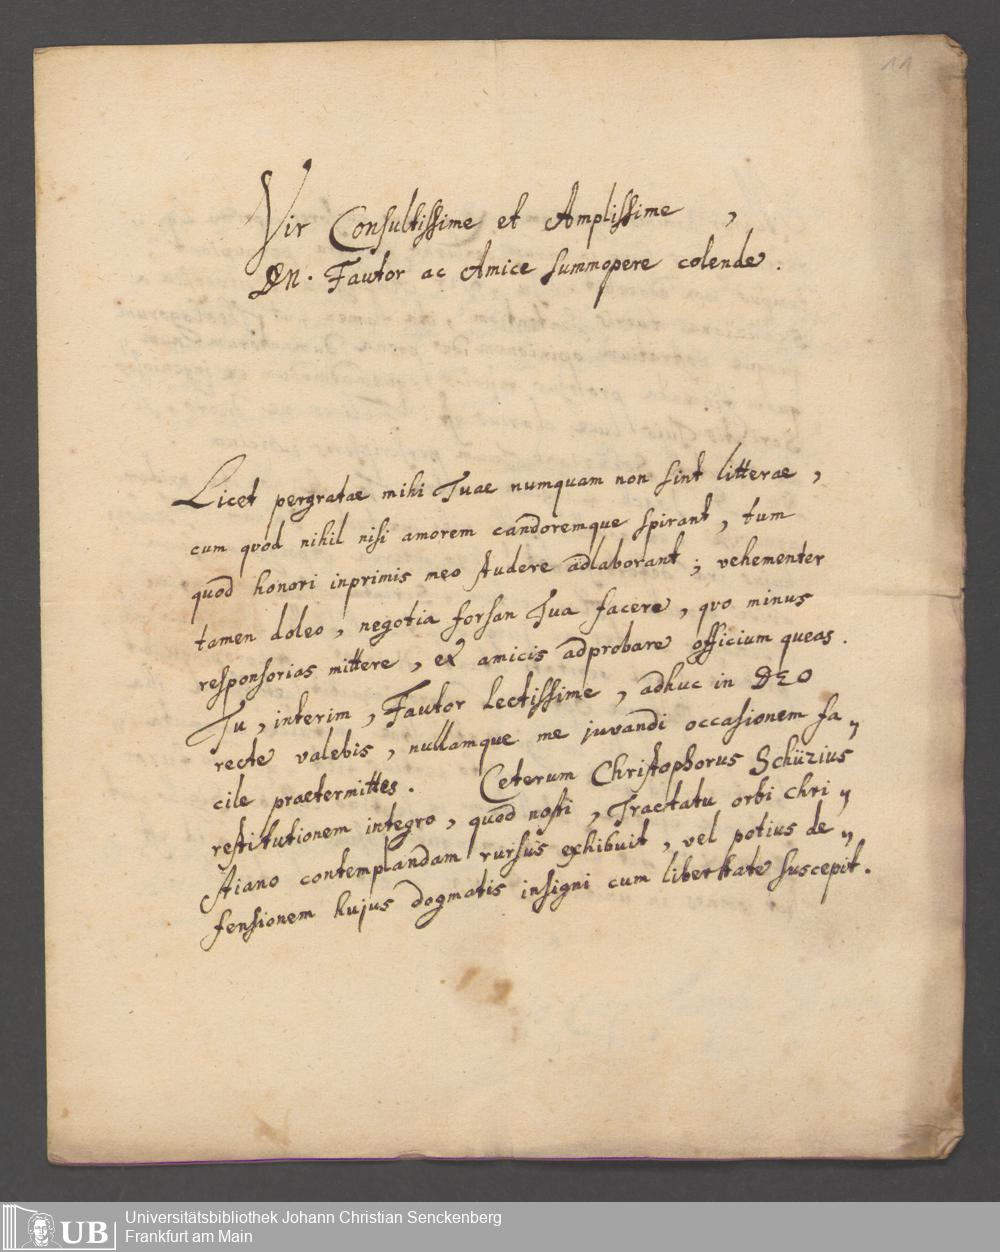 11
Vir Consultissime et Amplissime,
Dn. Fautor ac Amice summopere colende.
Licet pergratae mihi Tuae numquam non sint litterae,
cum quod nihil nisi amorem candoremque spirant, tum
quod honori inprimis meo studere adlaborant; vehementer
tamen doleo, negotia forsan Tua facere, quo minus
responsorias mittere, ex amicis adprobare officium queas.
Tu, interim, Fautor Lectissime, adhuc in DEO
recte valebis, nullamque me juvandi occasionem fa„
cile praetermittes. Ceterum Christophorus Schüzius
restitutionem integro, quod nosti, Tractatu orbi chri„
stiano contemplandam rursus exhibuit, vel potius de„
fensionem hujus dogmatis insigni cum libertate suscepit.
UB
Universitätsbibliothek Johann Christian Senckenberg
Frankfurt am Main